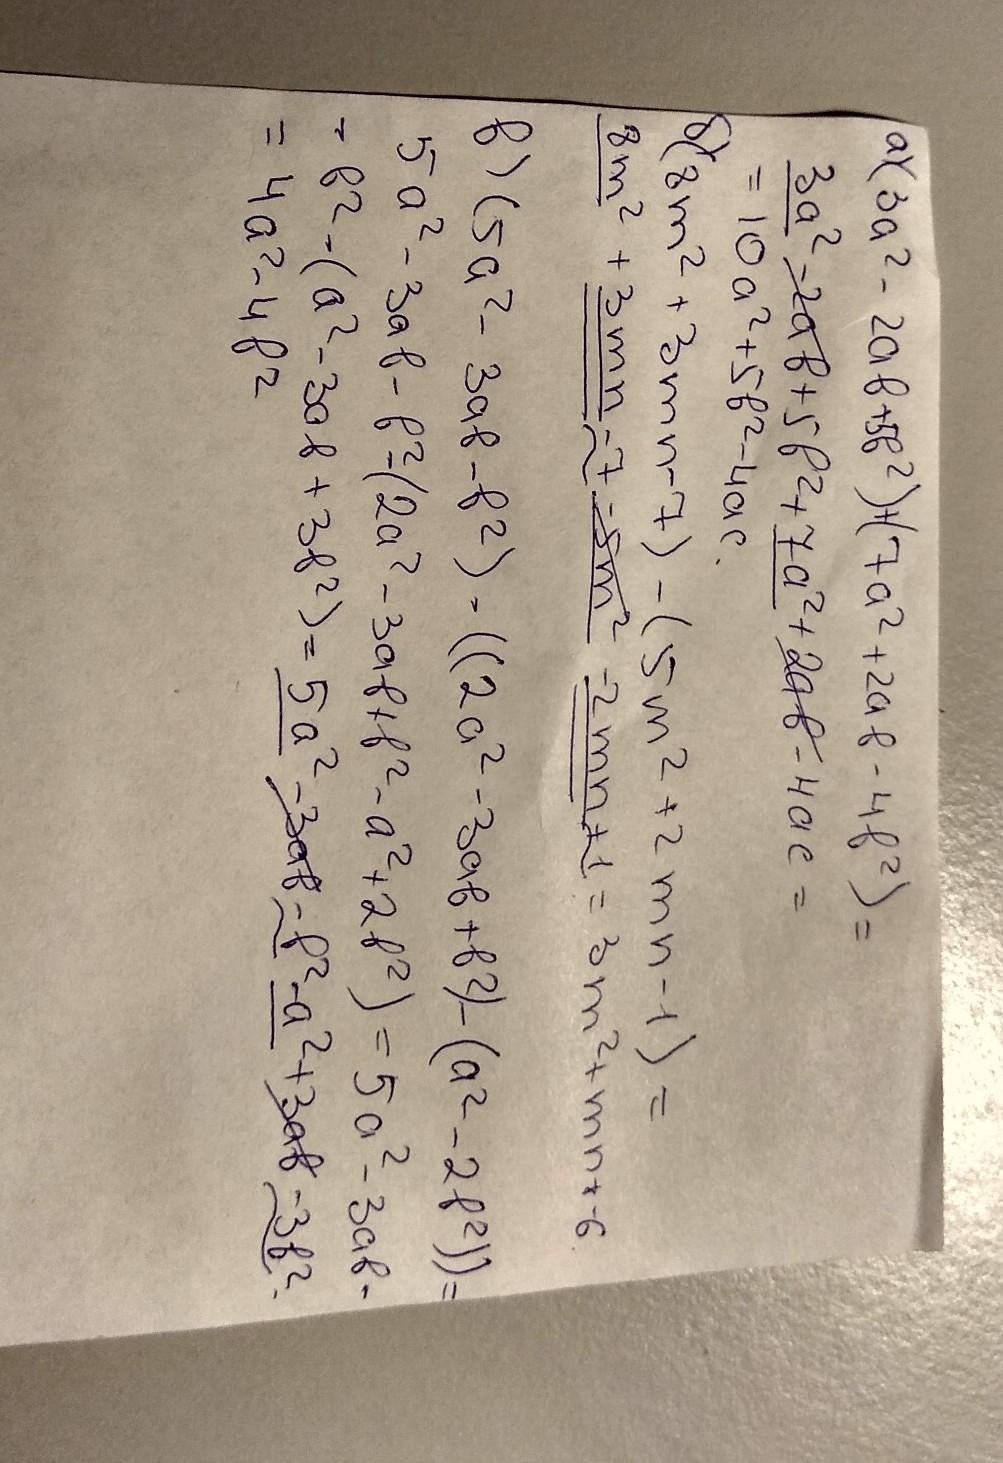 а) (3a² - 2ab + 5b²) + (7a² + 2ab - 4b²) =
3a² - 2ab + 5b² + 7a² + 2ab - 4ac =
= 10a² + 5b² - 4ac.
б) (8m² + 3mn - 7) - (5m² + 2mn - 1) =
8m² + 3mn - 7 - 5m² - 2mn + 1 = 3m² + mn + -6.
в) (5a² - 3ab - b²) - ((2a² - 3ab + b²) - (a² - 2b²)) =
5a² - 3ab - b² - (2a² - 3ab + b² - a² + 2b²) = 5a² - 3ab -
- b² - (a² - 3ab + 3b²) = 5a² - 3ab - b² - a² + 3ab - 3b².
= 4a² - 4b²